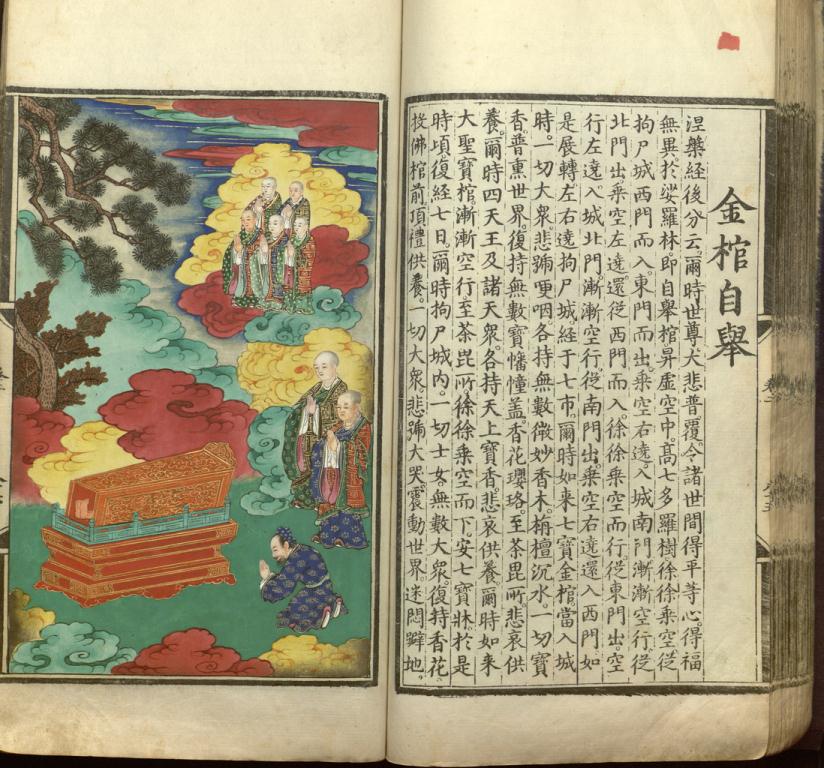 金棺自舉
涅槃經後分云。爾時世尊大悲普覆。令諸世間得平等心。得福
無異於娑羅林即自舉棺昇虛空中。高七多羅樹徐徐乘空從
拘尸城西門而入。東門而出。乘空右遶。入城南門漸漸空行從
北門出乘空左遶還從西門而入。徐徐乘空而行從東門出。空
行左遶入城北門。漸漸空行從南門出。乘空右遶還入西門如
是展轉左右遶拘尸城經于七帀。爾時如來七寶金棺當入城
時。一切大衆悲號哽咽各持無數微妙香木。栴檀沉水。一切寶
香。普熏世界。復持無數寶幡幢蓋。香花瓔珞。至茶毘所。悲哀供
養。爾時四天王及諸天衆。各持天上寶香。悲哀供養。爾時如來
大聖寶棺漸漸空行。至茶毘所徐徐乘空而下。安七寶牀於是
時頃復經七日。爾時拘尸城內。一切士女無數大衆。復持香花
投佛棺前頂禮供養。一切大衆。悲號大哭。震動世界。迷悶躃地。